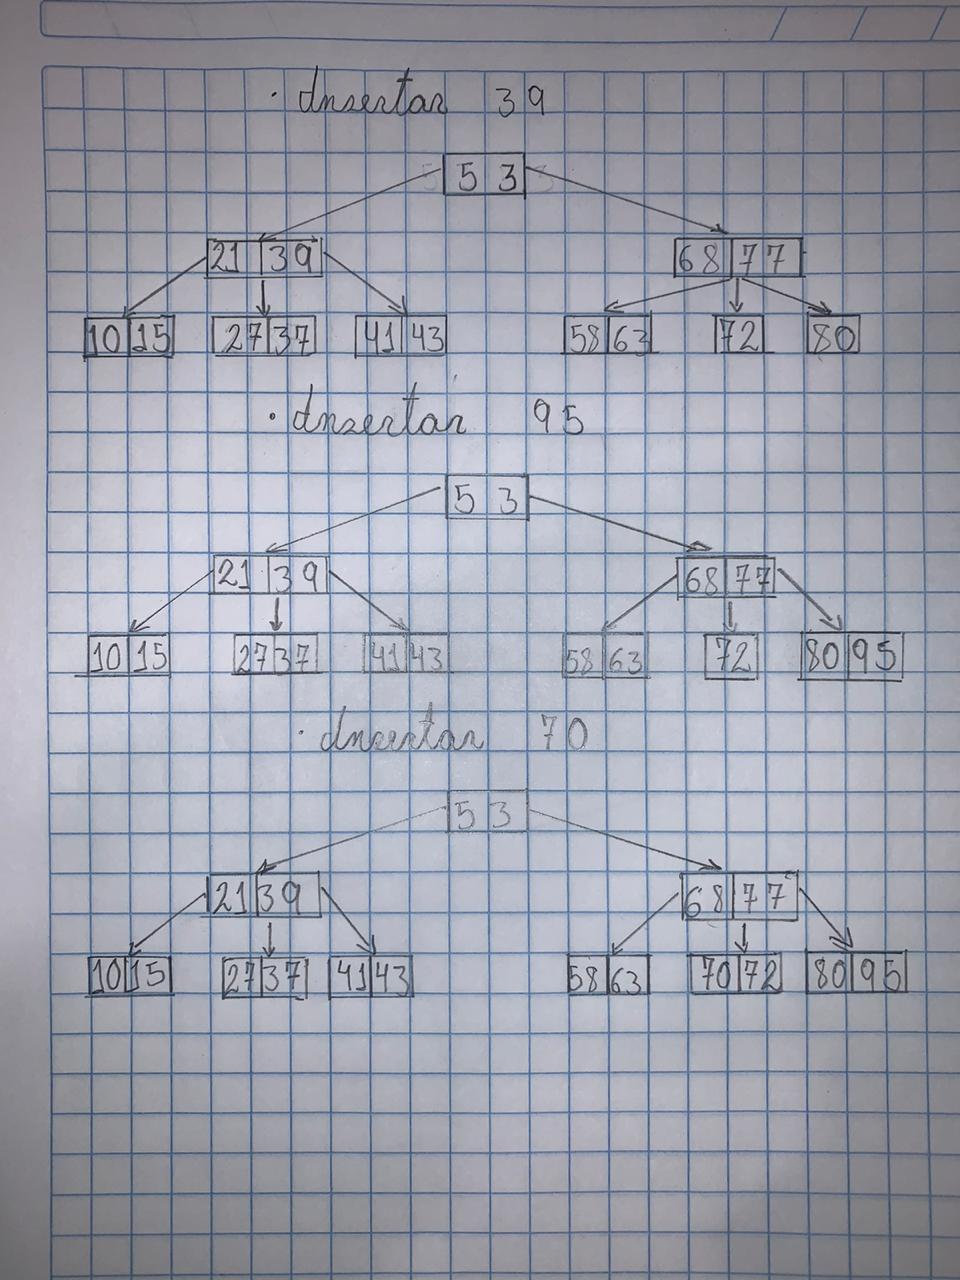 · Insertar 39
53
21 39 68 77
10 15 27 37 41 43 58 63 72 80
· Insertar 95
53
21 39 68 77
10 15 27 37 41 43 58 63 72 80 95
· Insertar 70
53
21 39 68 77
10 15 27 37 41 43 58 63 70 72 80 95